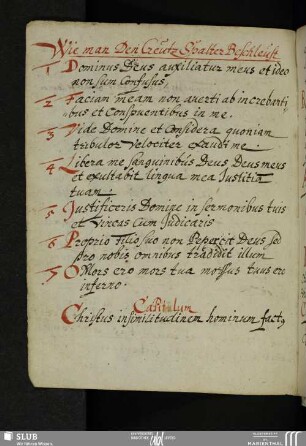 Wie man Den Creutz Psalter Beschleust
1 Dominus Deus auxiliatur meus et ideo
non sum Confusus,
2 Faciam meam non averti ab increbanti
bus et Conspuentibus in me.
3 Vide Domine et Considera quoniam
tribulor Velociter exaudi me.
4 Libera me sanguinibus Deus Deus meus
et exultabit lingua mea Justitia
tuam.
5 Justificeris Domine in sermonibus tuis
et Vincas Cum Judicaris
6 Proprio Filio suo non Pepercit Deus sed
pro nobis omnibus tradidit illum
7 O Mors ero mors tua morsus tuus ero
inferno.
Capitulum
Christus in similitudinem hominum fact9
SLUB
Wir führen Wissen.
MARIENTHAL